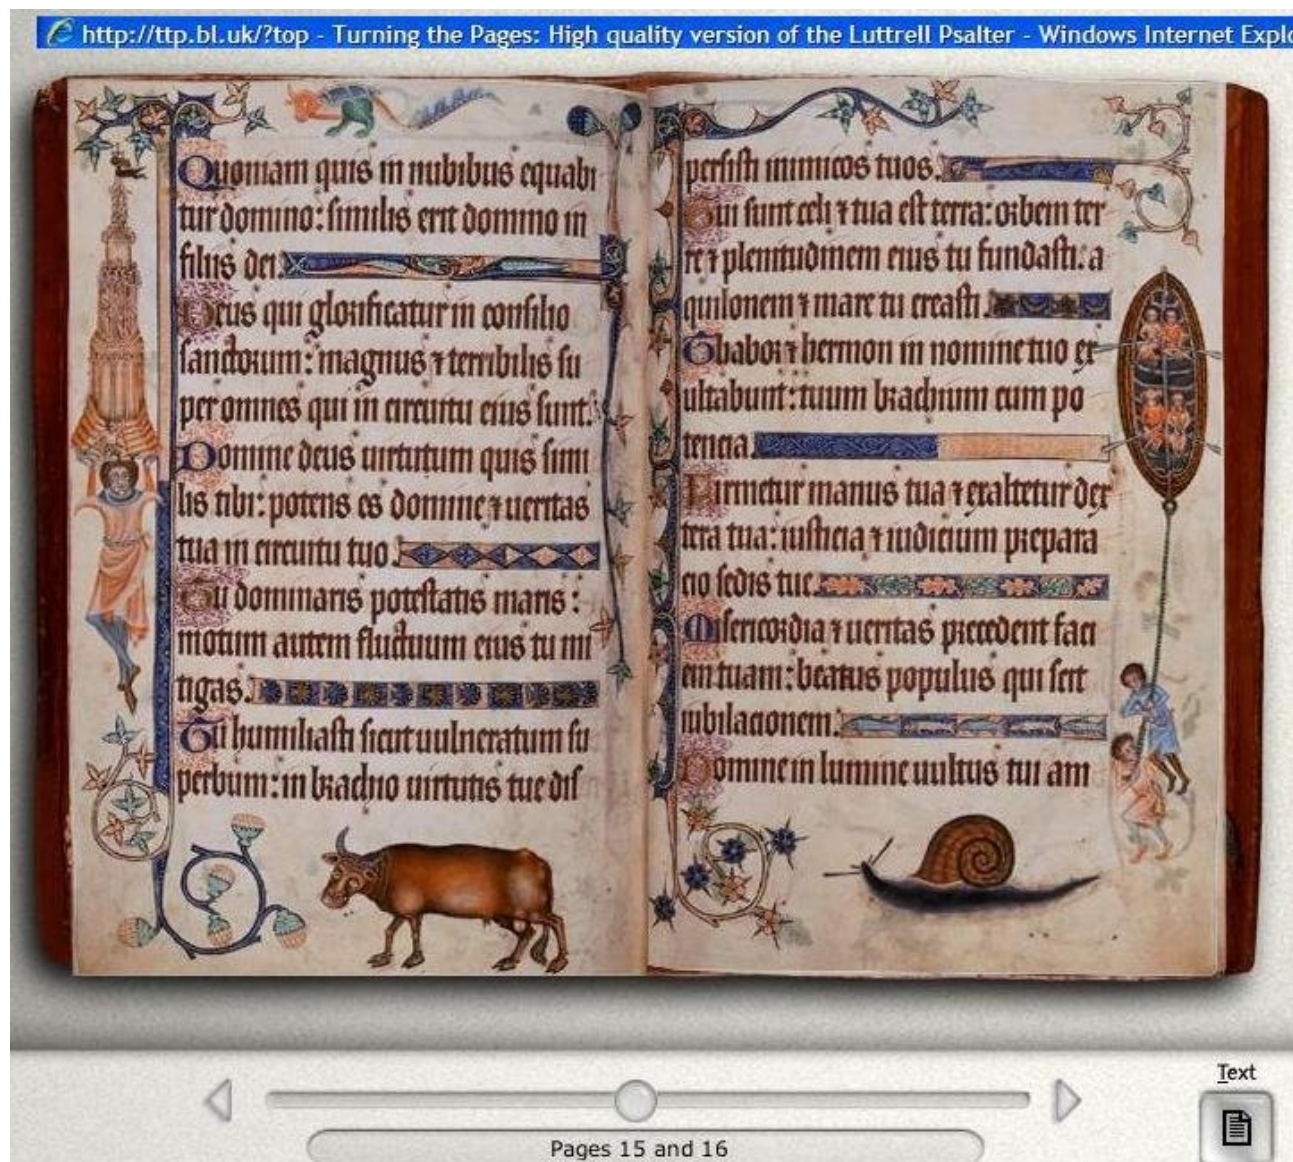 http://ttp.bl.uk/?top - Turning the Pages: High quality version of the Luttrell Psalter - Windows Internet Explo
Quoniam quis in nubibus equabi
tur domino: similis erit domino in
filiis dei.
Deus qui glorificatur in consilio
sanctorum: magnus ⁊ terribilis su
per omnes qui in circuitu eius sunt.
Domine deus uirtutum quis simi
lis tibi: potens es domine ⁊ ueritas
tua in circuitu tuo.
Tu dominaris potestatis maris:
motum autem fluctuum eius tu mi
tigas.
Tu humiliasti sicut uulneratum su
perbum: in brachio uirtutis tue dis
persisti inimicos tuos.
Tui sunt celi ⁊ tua est terra: orbem ter
re ⁊ plenitudinem eius tu fundasti: a
quilonem ⁊ mare tu creasti.
Thabor ⁊ hermon in nomine tuo ex
ultabunt: tuum brachium cum po
tencia.
Firmetur manus tua ⁊ exaltetur dex
tera tua: iusticia ⁊ iudicium prepara
cio sedis tue.
Misericordia ⁊ ueritas precedent faci
em tuam: beatus populus qui scit
iubilacionem.
Domine in lumine uultus tui am
Text
Pages 15 and 16